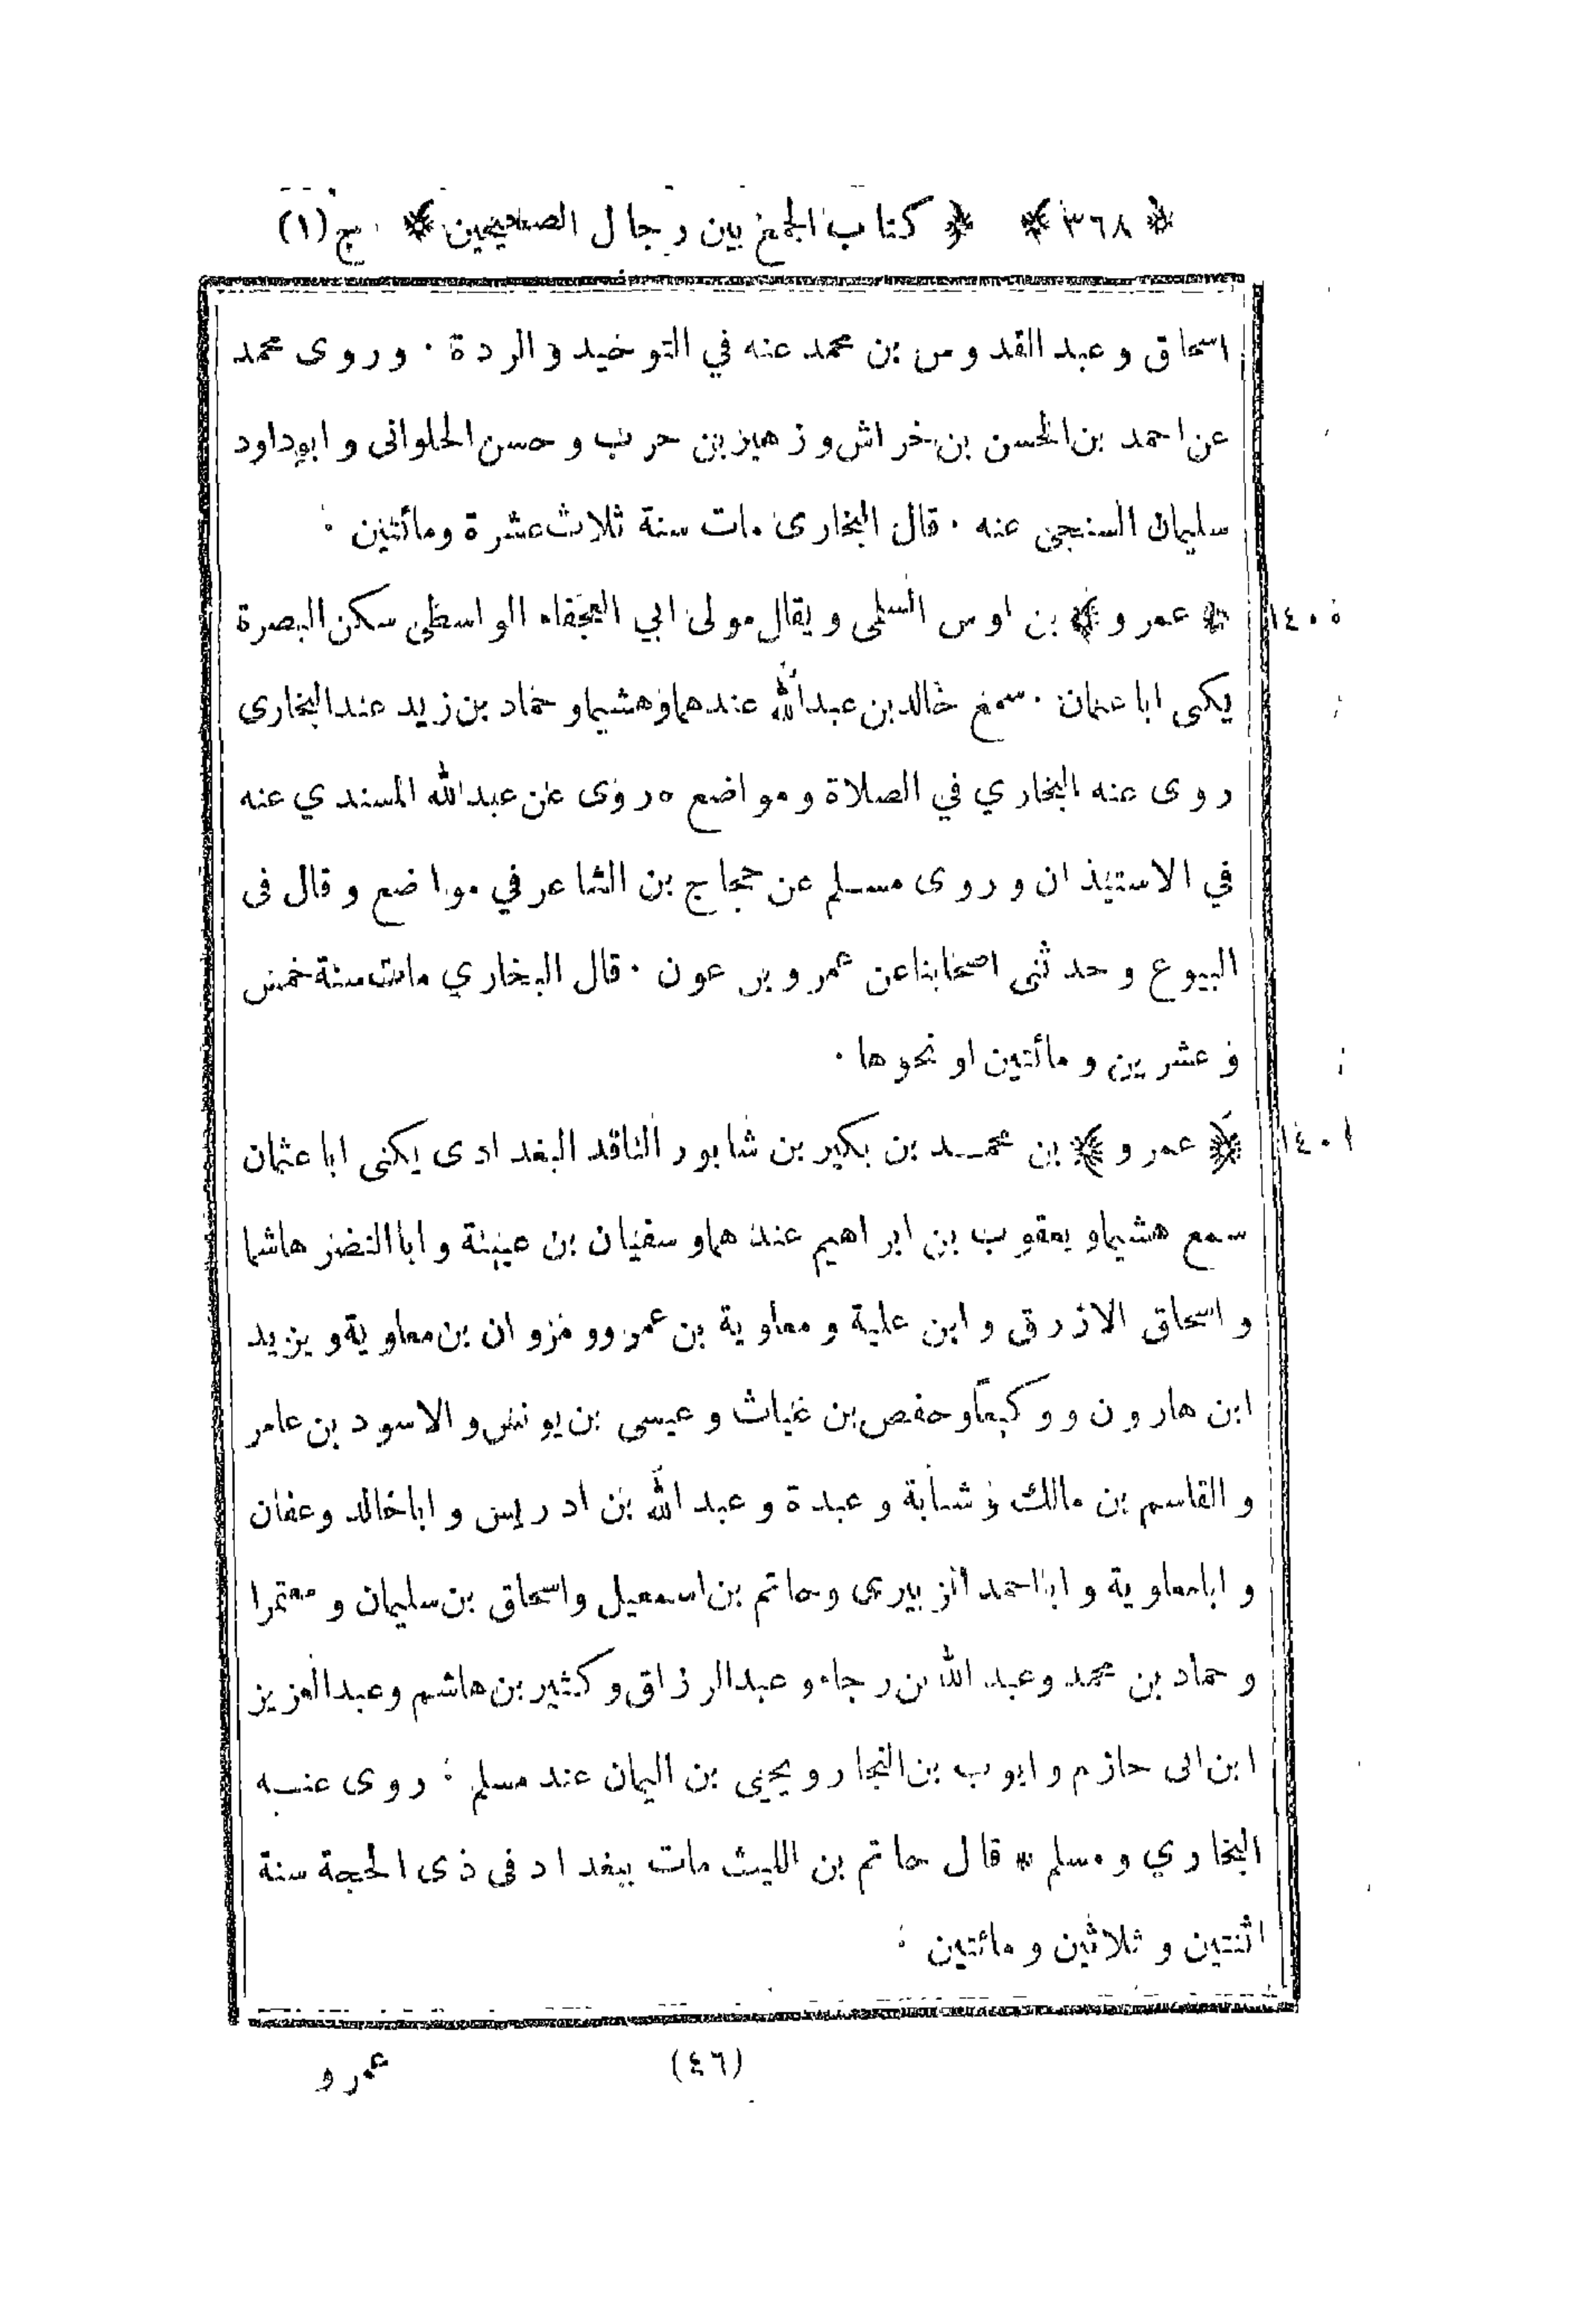 ﴿٣٦٨﴾ ﴿كتاب الجمع بين رجال الصحيحين﴾ ج (١)
اسحاق وعبد القدوس بن محمد عنه في التوحيد و الردة . وروى محمد
عن احمد بن الحسن بن خراش و زهير بن حرب و حسن الحلوانى و ابو داود
سليمان السنجى عنه . قال البخارى مات سنة ثلاث عشرة ومائتين .
١٤٠٠ ﴿عمرو﴾ بن اوس السلمى ويقال مولى ابي العجفاء الواسطى سكن البصرة
يكنى ابا عثمان . سمع خالد بن عبدالله عندهما وهشيما و حماد بن زيد عند البخارى
روى عنه البخاري في الصلاة و مواضع ه روى عن عبدالله المسندي عنه
في الاستيذان و روى مسلم عن حجاج بن الشاعر في مواضع وقال فى
البيوع و حدثنى اصحابنا عن عمرو بن عون . قال البخاري مات سنة خمس
و عشرين و مائتين او نحوها .
١٤٠١ ﴿عمرو﴾ بن محمد بن بكير بن شابور الناقد البغدادى يكنى ابا عثمان
سمع هشيما و يعقوب بن ابراهيم عندهما و سفيان بن عيينة و ابا النضر هاشما
و اسحاق الازرق و ابن علية و معاوية بن عمرو و مروان بن معاوية و يزيد
ابن هارون و وكيعا و حفص بن غياث و عيسى بن يونس و الاسود بن عامر
و القاسم بن مالك و شبابة و عبدة و عبد الله بن ادريس و ابا خالد وعفان
و ابا معاوية و ابا احمد الزبيرى وحاتم بن اسمعيل و اسحاق بن سليمان و معتمرا
و حماد بن محمد وعبد الله بن رجاء و عبدالرزاق و كثير بن هاشم وعبد العزيز
ابن ابى حازم و ايوب بن النجار و يحيى بن اليمان عند مسلم . روى عنه
البخاري و مسلم * قال حاتم بن الليث مات ببغداد فى ذى الحجة سنة
اثنتين و ثلاثين و مائتين .
(٤٦) عمرو